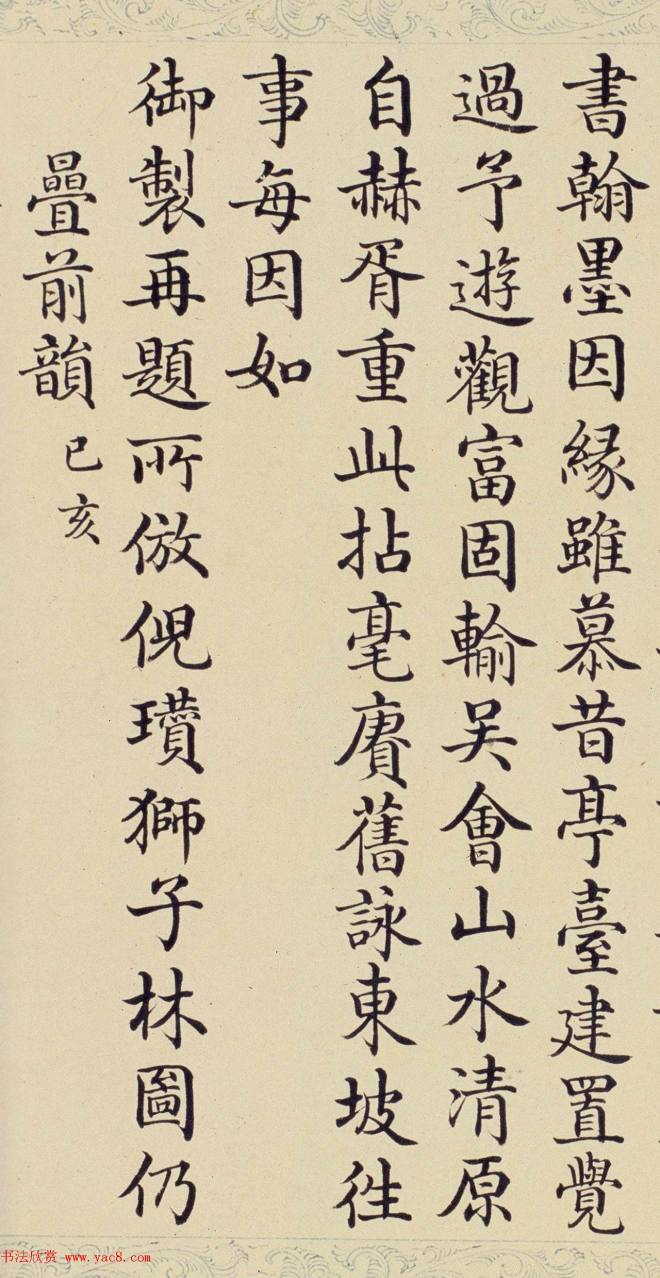 書翰墨因緣雖慕昔亭臺建置覺
過予遊觀富固輸吴會山水清原
自赫胥重此拈毫賡舊詠東坡徃
事每因如
御製再題所倣倪瓚獅子林圖仍
疊前韻 己亥
书法欣赏 www.yac8.com